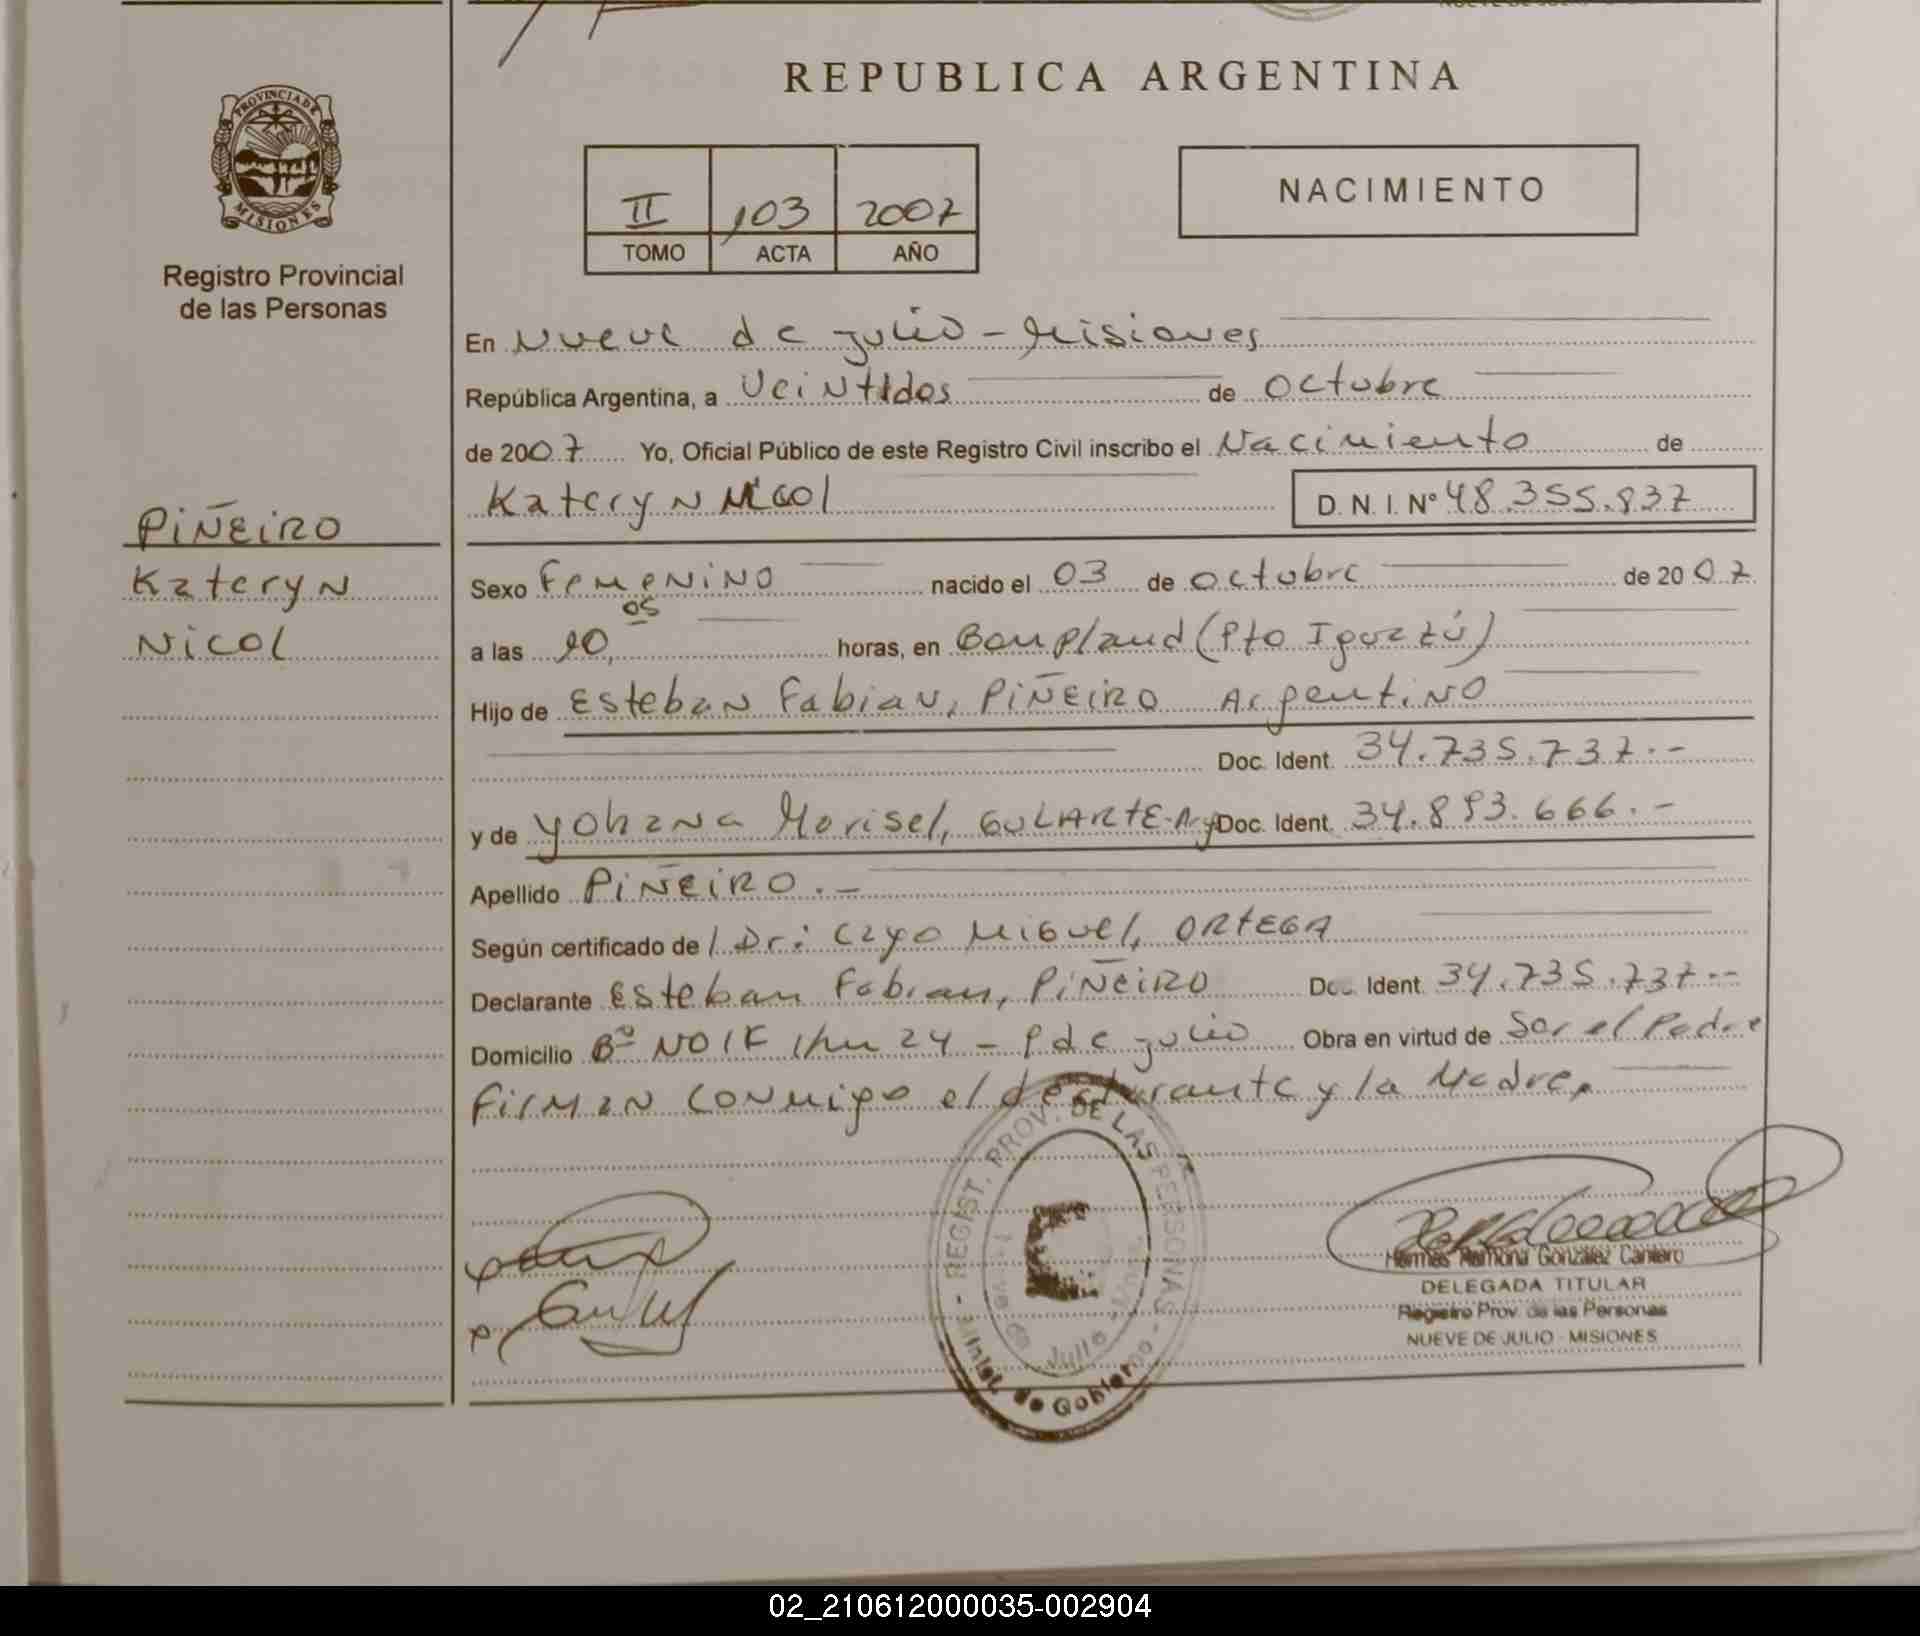 REPUBLICA ARGENTINA
PROVINCIA DE
MISIONES
Registro Provincial
de las Personas
II 103 2007
TOMO ACTA AÑO
NACIMIENTO
En Nueve de julio - Misiones
República Argentina, a Veintidos de octubre
de 2007 Yo, Oficial Público de este Registro Civil inscribo el Nacimiento de
Kateryn Nicol D. N. I. Nº 48.355.837
PIÑEIRO
Kateryn
Nicol
Sexo Femenino nacido el 03 de octubre de 2007
a las 10,05 horas, en Bonpland (Pto Iguazú)
Hijo de Esteban Fabian, PIÑEIRO Argentino
Doc. Ident. 34.735.737.-
y de Yohana Marisel, GULARTE-Arg Doc. Ident. 34.893.666.-
Apellido PIÑEIRO.-
Según certificado de Dr: Cayo Miguel, ORTEGA
Declarante Esteban Fabian, PIÑEIRO Doc. Ident. 34.735.737.-
Domicilio Bº 24 - 9 de julio Obra en virtud de Ser el Padre
Firman conmigo el declarante y la Madre,
REGIST. PROV. DE LAS PERSONAS
Minist. de Gobierno
Julio
Hermes Ramona González Cantero
DELEGADA TITULAR
Registro Prov. de las Personas
NUEVE DE JULIO - MISIONES
02_210612000035-002904